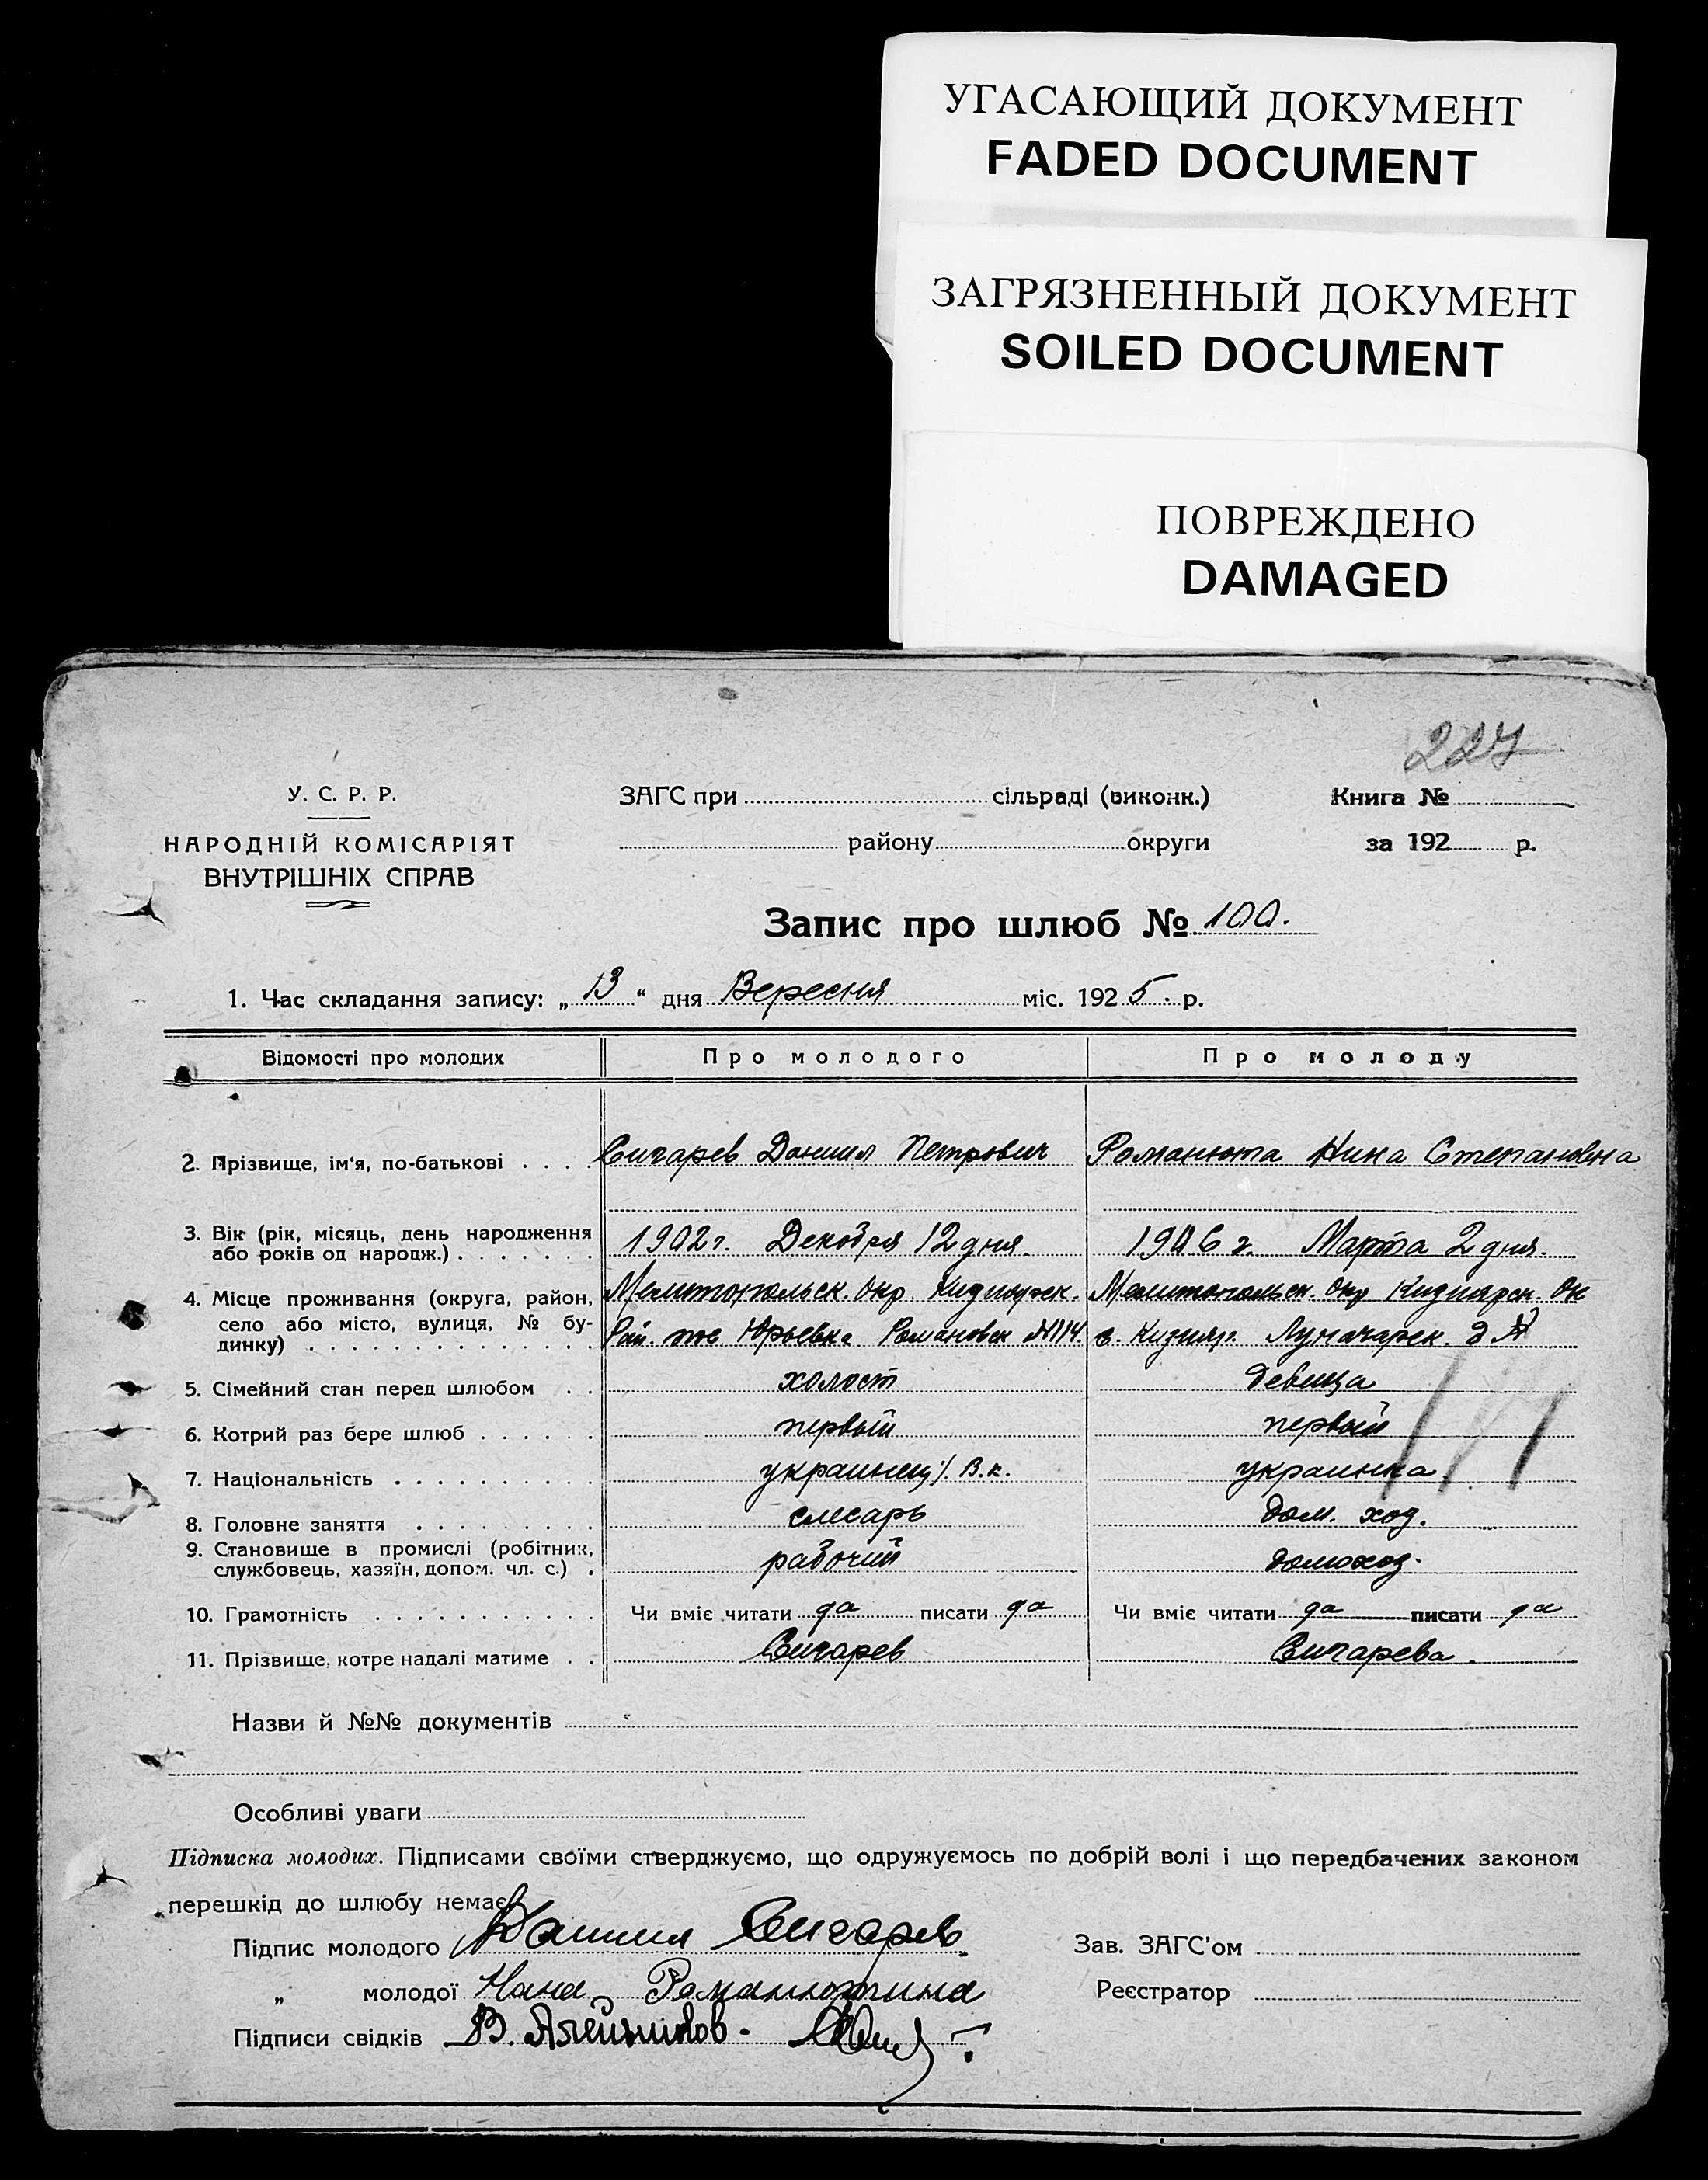 УГАСАЮЩИЙ ДОКУМЕНТ
FADED DOCUMENT
ЗАГРЯЗНЕННЫЙ ДОКУМЕНТ
SOILED DOCUMENT
ПОВРЕЖДЕНО
DAMAGED
227
У. С. Р. Р.
НАРОДНІЙ КОМІСАРІЯТ
ВНУТРІШНІХ СПРАВ
ЗАГС при сільраді (виконк.)
району округи
Книга №
за 192 р.
Запис про шлюб № 100.
1. Час складання запису: „ 13 “ дня Вересня міс. 192 5. р.
Відомості про молодих Про молодого Про молоду
2. Прізвище, ім‘я, по-батькові Сичарев Даниил Петрович Романюта Нина Степановна
3. Вік (рік, місяць, день народження або років од народж.) 1902 г. Декабря 12 дня. 1906 г. Марта 2 дня.
4. Місце проживання (округа, район, Мелитопольск. Окр. Мелитопольск. Окр
село або місто, вулиця, № бу- Юрьевка Романовск №114. Луначарск.
динку)
5. Сімейний стан перед шлюбом холост девица
6. Котрий раз бере шлюб первый первый
7. Національність украинец В.к. украинка.
8. Головне заняття слесарь дом. хоз.
9. Становище в промислі (робітник, службовець, хазяїн, допом. чл. с.) рабочий домохоз.
10. Грамотність Чи вміє читати да писати да Чи вміє читати да писати да
11. Прізвище, котре надалі матиме Сичарев Сичарева.
Назви й №№ документів
Особливі уваги
Підписка молодих. Підписами своїми стверджуємо, що одружуємось по добрій волі і що передбачених законом
перешкід до шлюбу немає.
Підпис молодого Даниил Сичарев Зав. ЗАГС’ом
„ молодої Нина Романютина Реєстратор
Підписи свідків В. Алейников.